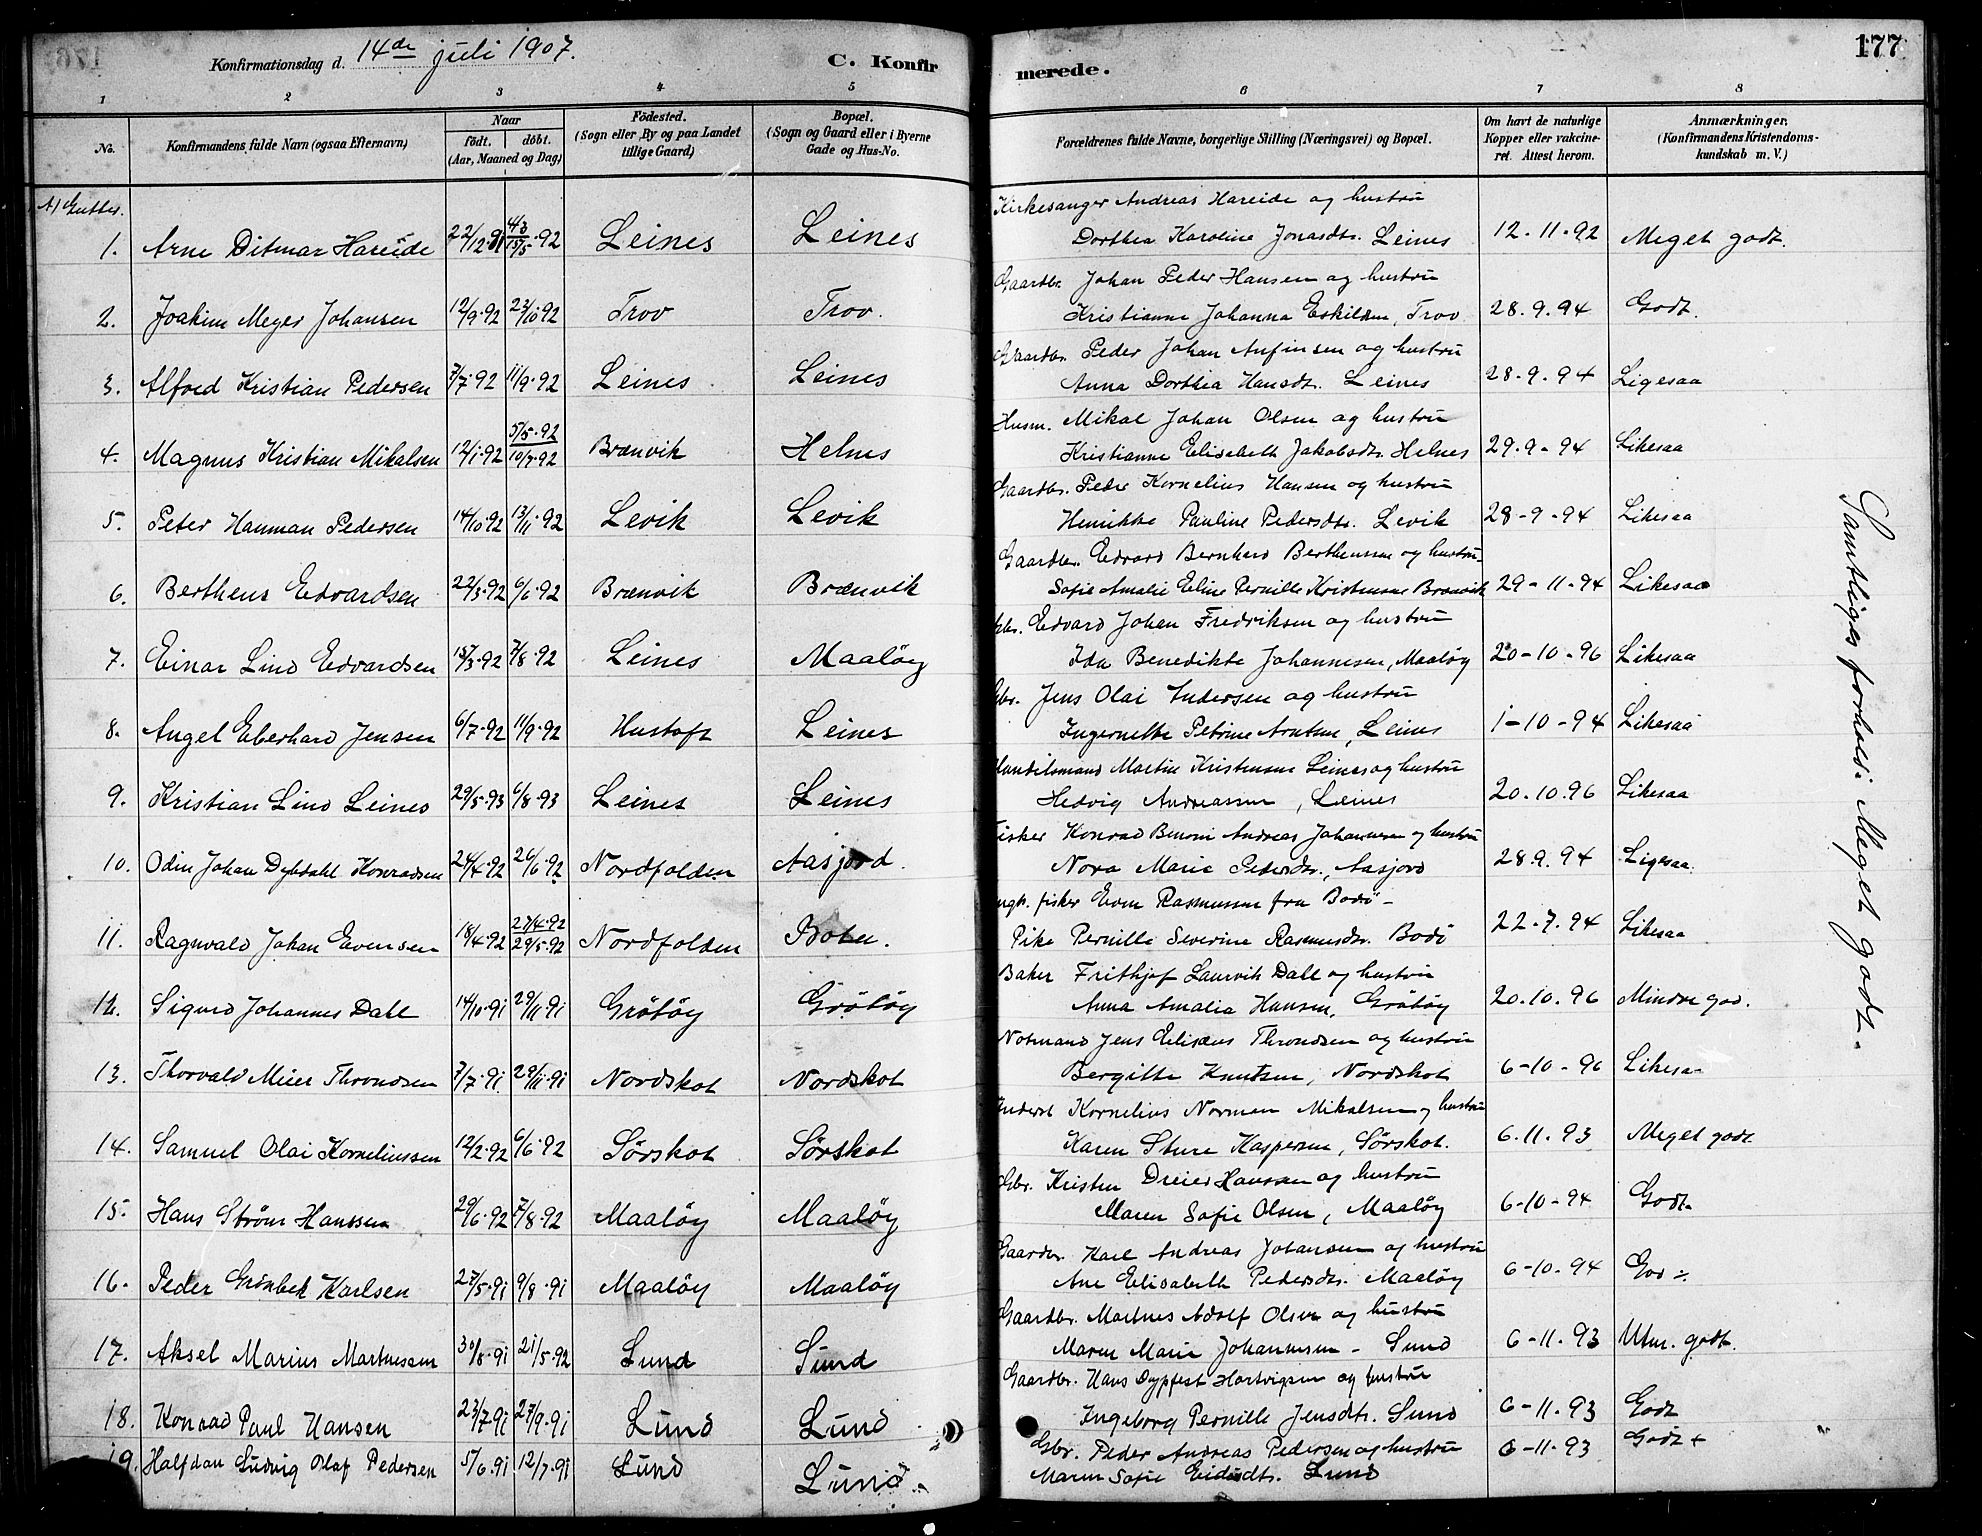 Konfirmationsdag d. 14de juli 1907.
C. Konfirmerede.
177
1 2 3 4 5 6 7 8
No.
Konfirmandens fulde Navn (ogsaa Efternavn)
Naar født. døbt. (Aar, Maaned og Dag)
Fødested. (Sogn eller By og paa Landet tillige Gaard)
Bopæl. (Sogn og Gaard eller i Byerne Gade og Hus-No.
Forældrenes fulde Navne, borgerlige Stilling (Næringsvei) og Bopæl.
Om havt de naturlige Kopper eller vakcineret. Attest herom.
Anmærkninger. (Konfirmandens Kristendomskundskab m. V.)
A) Gutter.
Kirkesanger Andreas Hareide og hustru
1. Arne Ditmar Hareide 22/12.91 4/3 15/5.92 Leines Leines Dorthea Karoline Jonasdtr. Leines 12.11-92 Meget godt.
Gaardbr. Johan Peder Hansen og hustru
2. Joakim Meyer Johansen 12/9.92 23/10 92 Trov Trov. Kristianne Johanna Eskildsen, Trov 28.9.94 Godt.
Gaardbr. Peder Johan Anfinsen og hustru
3. Alfred Kristian Pedersen 7/7.92 11/9.92 Leines Leines Anna Dorthea Hansdtr. Leines 28-9.94 Ligesaa
Husm. Mikal Johan Olsen og hustru
4. Magnus Kristian Mikalsen 12/1.92 5/5.92 10/7.92 Brænvik Helnes Kristianne Elisabeth Jakobsdtr. Helnes 29.9-94 Likesaa
Gaardbr. Peder Kornelius Hansen og hustru
5. Peter Hanman Pedersen 14/10.92 13/11.92 Levik Levik Henrikke Pauline Pedersdtr. Levik 28-9-94 Likesaa
Gaardbr. Edvard Bernhard Berthensen og hustru
6. Berthens Edvardsen 22/3.92 6/6.92 Brænvik Brænvik Sofie Amalie Eline Pernille Kristensen Brænvik 29-11-94 Likesaa
Gbr. Edvard Johan Fredriksen og hustru
7. Einar Lind Edvardsen 15/3.92 7/8.92 Leines Maaløy Ida Benedikte Johannesen, Maaløy 20-10-96 Likesaa
Gbr. Jens Olai Andersen og hustru
8. Angel Eberhard Jensen 6/7.92 11/9.92 Hustoft Leines Ingernette Petrine Arntsen, Leines 1-10-94 Likesaa
Handelsmand Martin Kristensen Leines og hustru
9. Kristian Lind Leines 29/5.93 6/8.93 Leines Leines Hedvig Andreassen, Leines 20.10.96 Likesaa
Fisker Konrad Benoni Andreas Johannesen og hustru
10. Odin Johan Dybdahl Konradsen 24/4.92 26/6.92 Nordfolden Aasjord. Nora Marie Pedersdtr., Aasjord 28.9.94 Ligesaa
ungk. fisker Even Rasmussen fra Bodø -
11. Ragnvald Johan Evensen 18/4.92 27/4.92 29/5.92 Nordfolden Boten. Pike Pernille Severine Rasmusdtr. Bodø 22-7.94 Likesaa
Baker Frithjof Laurvik Dahl og hustru
12. Sigurd Johannes Dahl 14/10.91 29/11.91 Grøtøy Grøtøy Anna Amalia Hansen, Grøtøy 20.10.96 Mindre god.
Notmand Jens Elisæus Throndsen og hustru
13. Thorvald Meier Throndsen 7/7.91 29/11.91 Nordskot Nordskot Bergitte Knutsen, Nordskot 6-10-96 Likesa-
Inderst Kornelius Norman Mikalsen og hustru
14. Samuel Olai Korneliussen 12/2.92 6/6.92 Sørskot Sørskot Karen Sture Kaspersen, Sørskot. 6.11.93 Meget godt
Gbr. Kristen Dreier Hansen og hustru
15. Hans Strøm Hanssen 29/6.92 7/8.92 Maaløy Maaløy Maren Sofie Olsen, Maaløy 6-10-94 Godt.
Gaardbr. Karl Andreas Johansen og hustru
16. Peder Grønbek Karlsen 27/5.91 9/8.91 Maaløy Maaløy Ane Elisabeth Pedersdtr. Maaløy 6-10.94 God ÷
Gaardbr. Martines Adolf Olsen og hustru
17. Aksel Marius Martinessen 30/8.91 21/5.92 Lund Sund Maren Marie Johannesen - Sund 6-11.93 Utm. godt.
Gaardbr. Hans Dypfest Hartvigsen og hustru
18. Konrad Paul Hansen 23/7.91 27/9.91 Lund Lund Ingeborg Pernille Jensdtr. Sund 6-11.93 Godt
Gbr. Peder Andreas Pedersen og hustru
19. Halfdan Ludvig Olaf Pedersen 5/6.91 12/7.91 Lund Lund. Maren Sofie Eidisdtr. Lund 6-11-93 Godt +
Samtliges forhold: Meget godt.